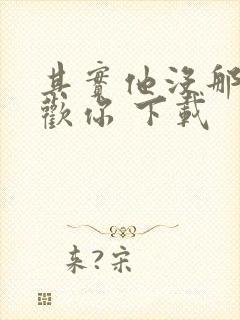 其實他沒那
歡你 下載
来?宋